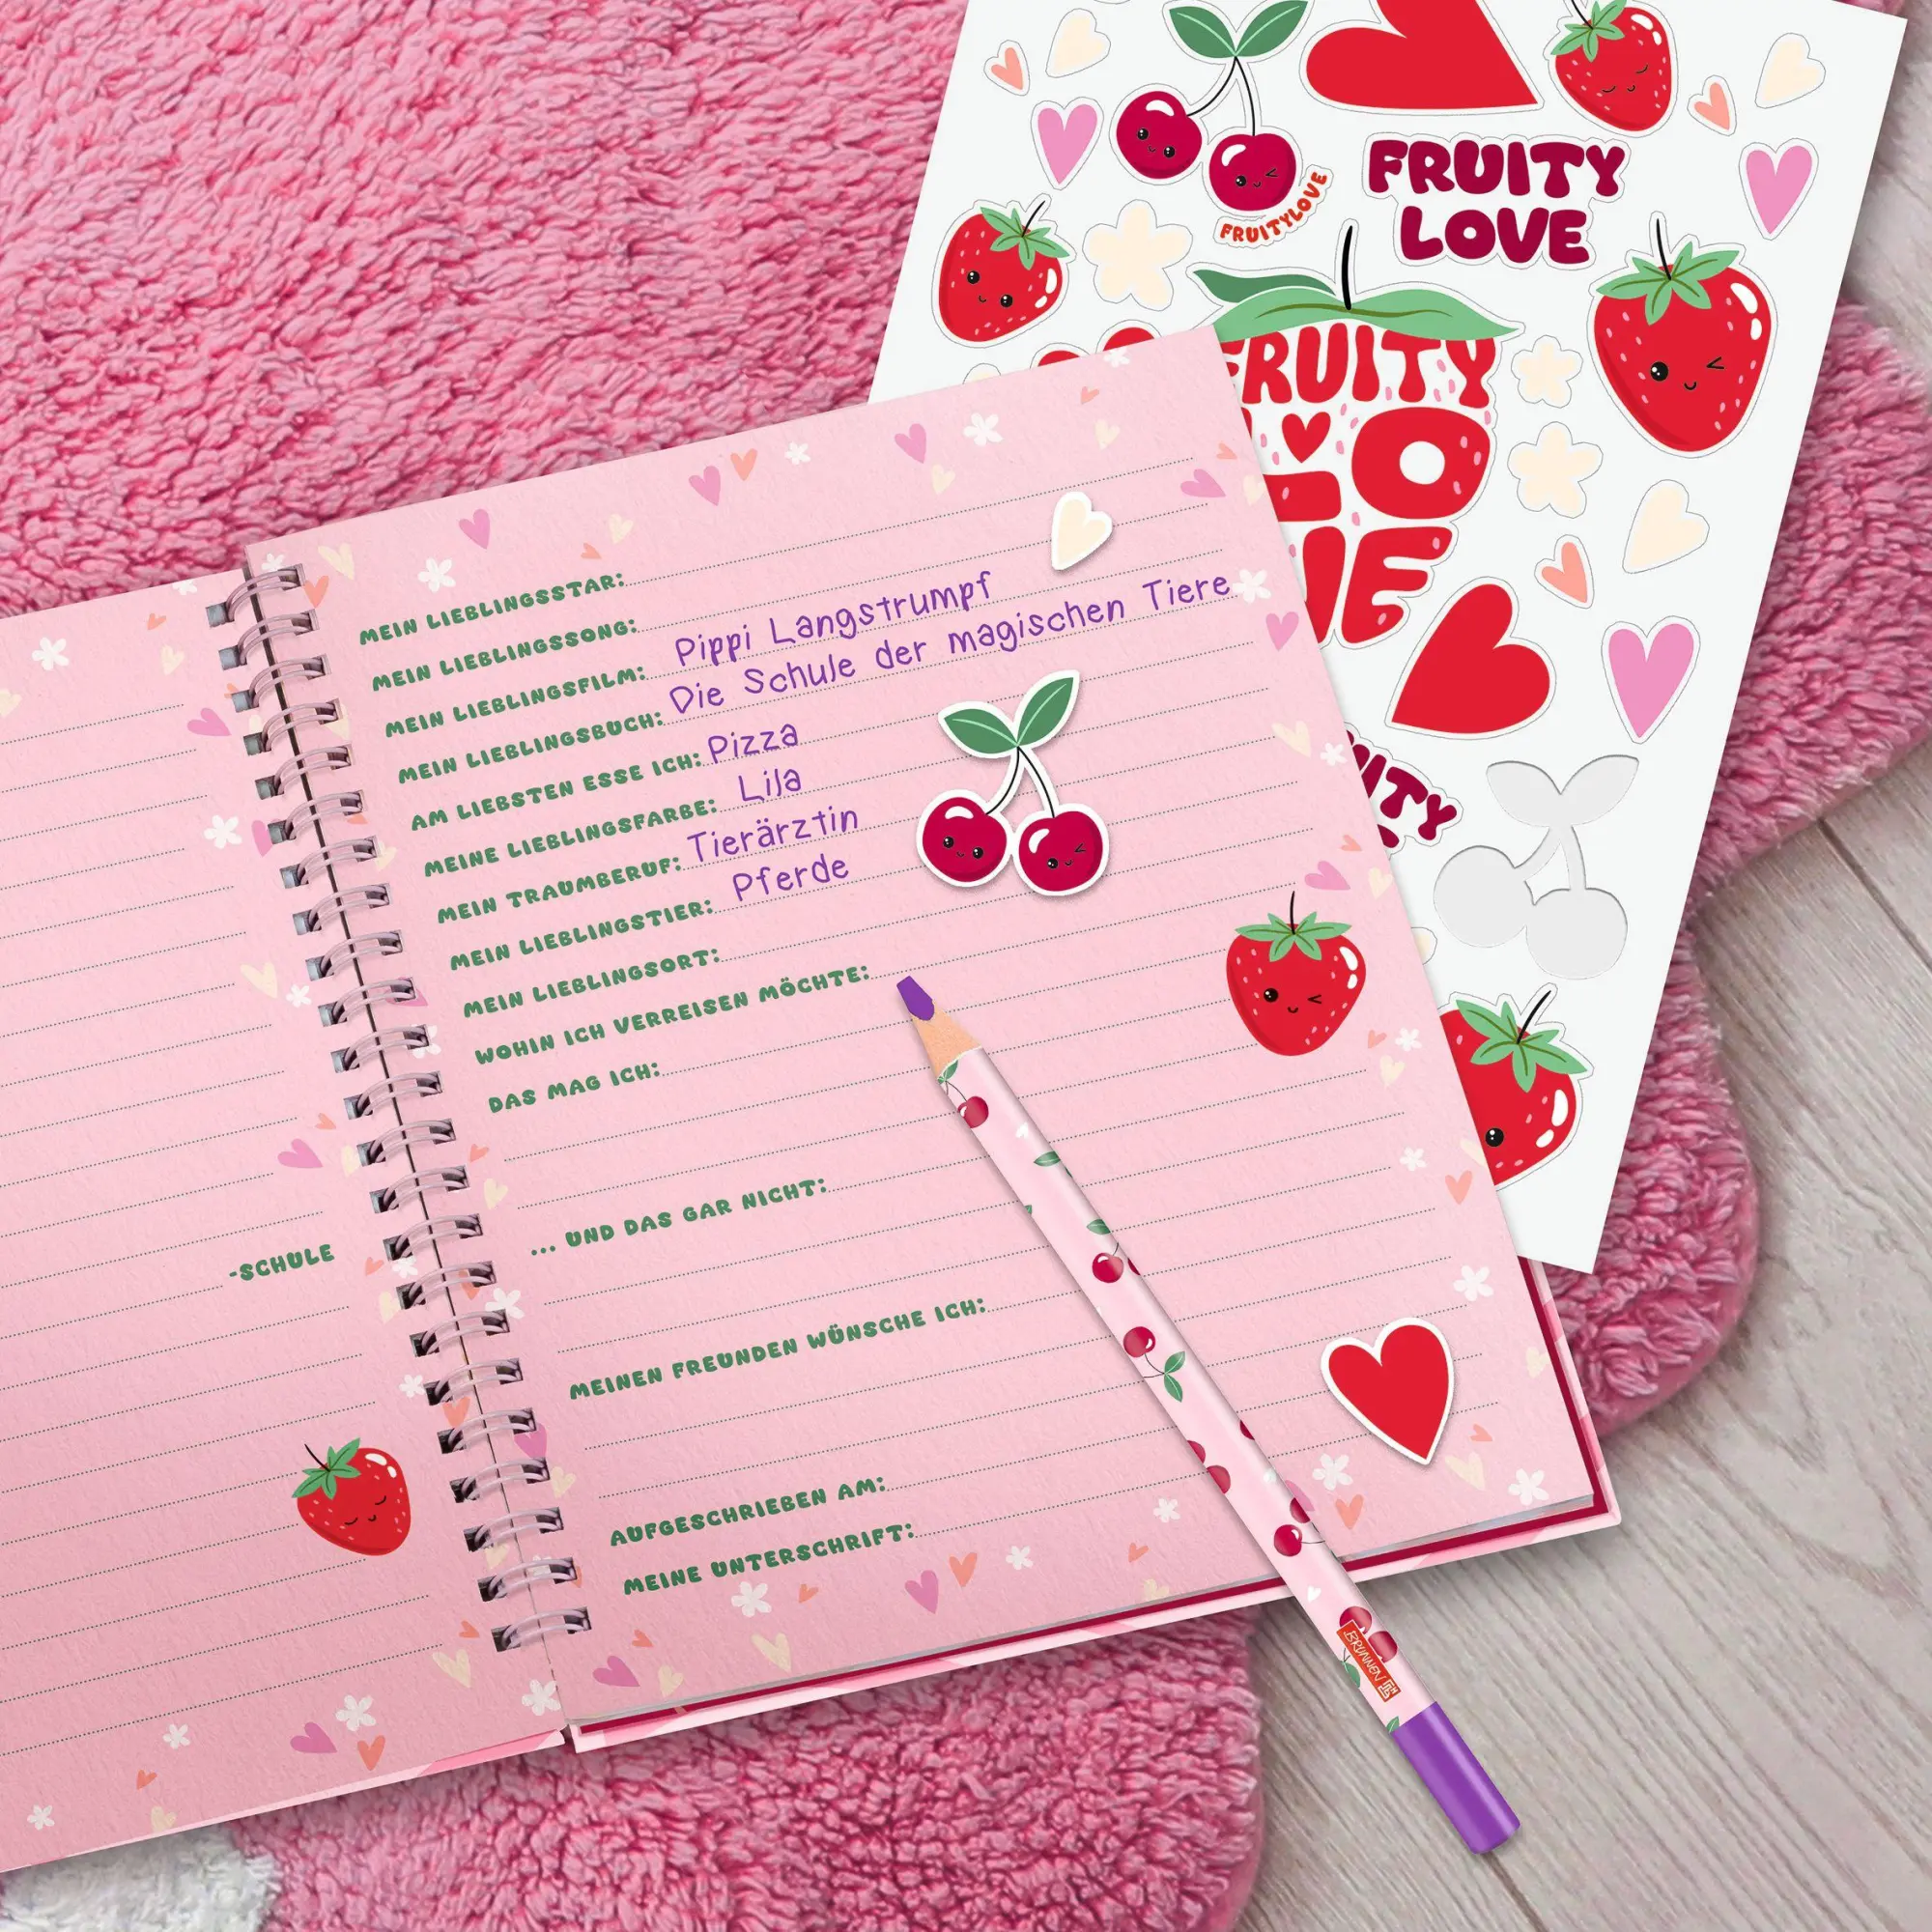 FRUITY
LOVE
FRUITYLOVE
FRUITY
LO
VE
MEIN LIEBLINGSSTAR:
MEIN LIEBLINGSSONG:
MEIN LIEBLINGSFILM: Pippi Langstrumpf
MEIN LIEBLINGSBUCH: Die Schule der magischen Tiere
AM LIEBSTEN ESSE ICH: Pizza
MEINE LIEBLINGSFARBE: Lila
MEIN TRAUMBERUF: Tierärztin
MEIN LIEBLINGSTIER: Pferde
MEIN LIEBLINGSORT:
WOHIN ICH VERREISEN MÖCHTE:
DAS MAG ICH:
... UND DAS GAR NICHT:
MEINEN FREUNDEN WÜNSCHE ICH:
AUFGESCHRIEBEN AM:
MEINE UNTERSCHRIFT:
-SCHULE
BRUNNEN